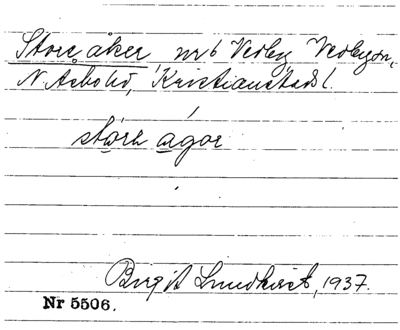 Store åker, nr 6 Verby, Verbyön,
N. Åsbo hd, Kristianstads l.
storə ågər
Birgit Lundkvist, 1937.
Nr 5506.